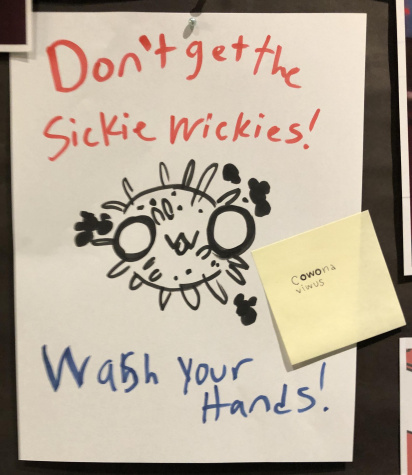 Don't get the
Sickie Wickies!
cowona
viwus
Wash Your
Hands!